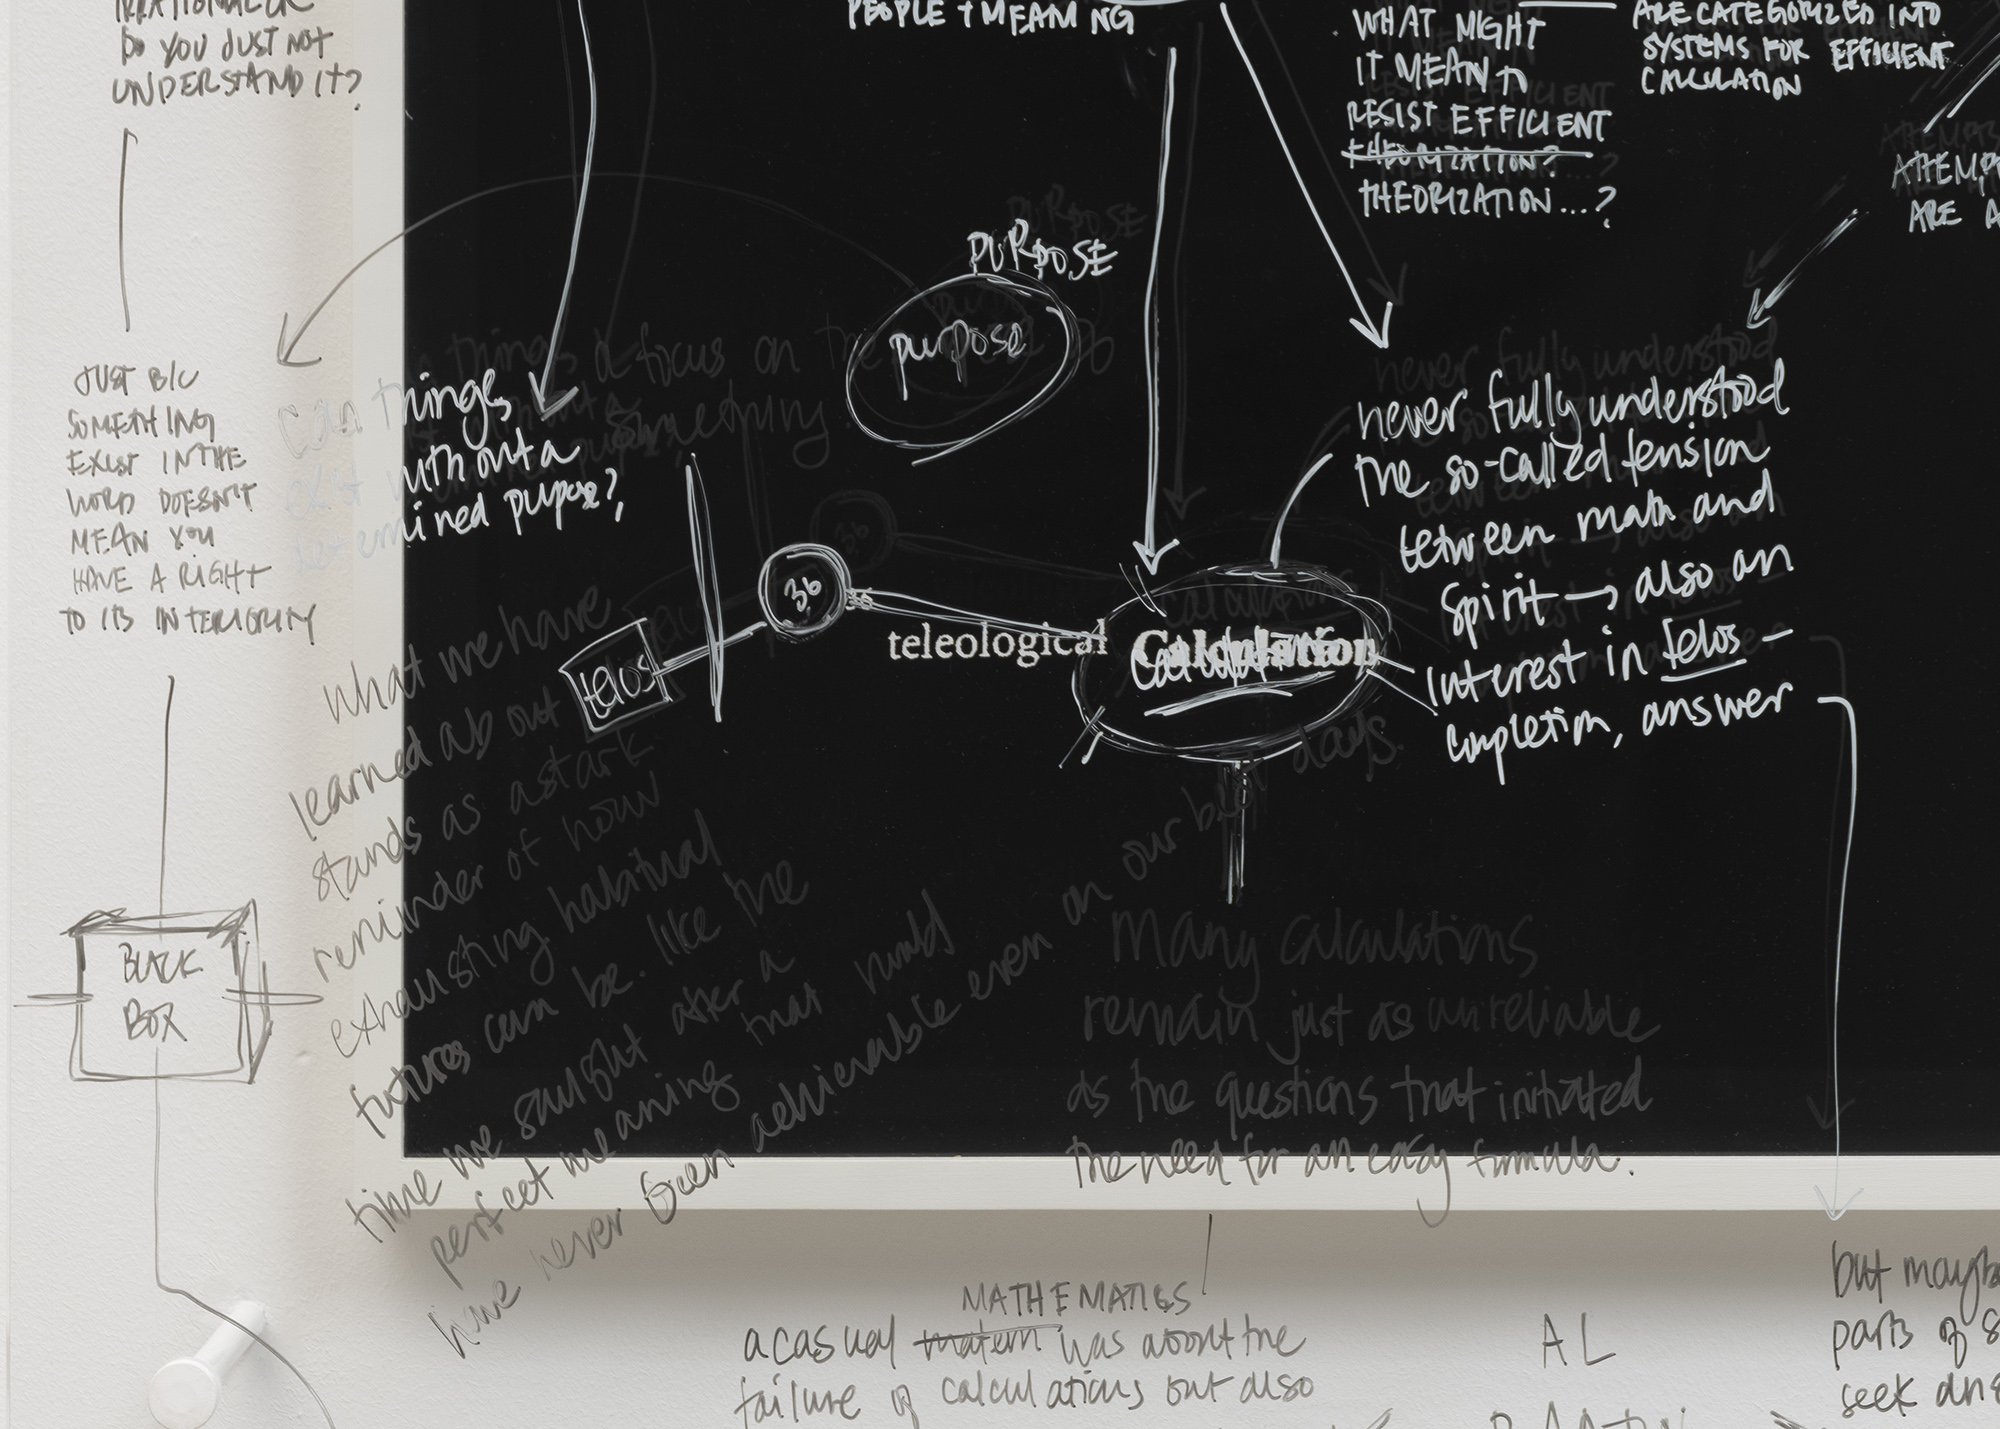 DO YOU JUST NOT
UNDERSTAND IT?
JUST B/C
SOMETHING
EXIST IN THE
WORD DOESN'T
MEAN YOU
HAVE A RIGHT
TO ITS INTERIORITY
BLACK
BOX
PEOPLE + MEANING
WHAT MIGHT
IT MEAN TO
RESIST EFFICIENT
THEORIZATION?
THEORIZATION...?
ARE CATEGORIZED INTO
SYSTEMS FOR EFFICIENT
CALCULATION
ARE A
PURPOSE
purpose
can things
exist without a
determined purpose?
telos
36
36
teleological
Calculation
never fully understood
the so-called tension
between math and
spirit → also an
interest in telos –
completion, answer
what we have
learned about
stands as a stark
reminder of how
exhausting habitual
futures can be. like the
time we saught after a
perfect meaning that would
have never been achievable even on our best days.
many calculations
remain just as unreliable
as the questions that initiated
the need for an easy formula.
MATHEMATICS
a casual matern was about the
failure of calculations but also
AL
but mayb
parts of s
seek ans